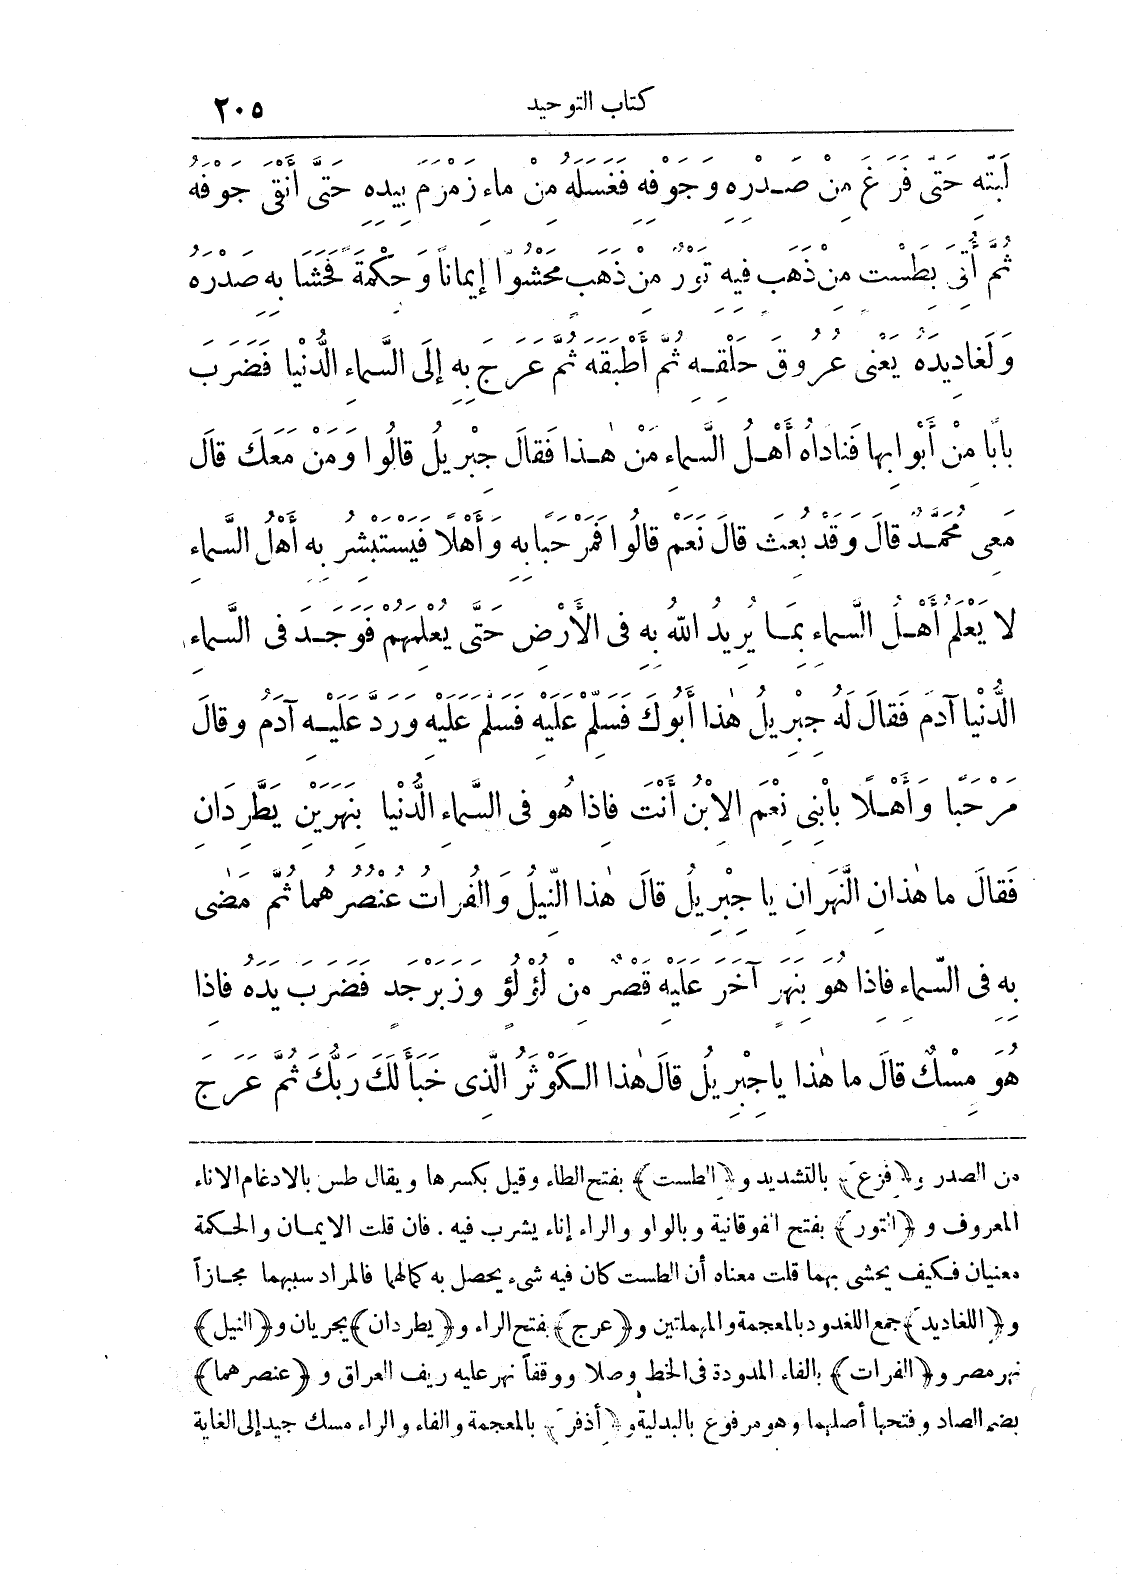 كتاب التوحيد ٢٠٥
لَبَّتِهِ حَتَّى فَرَغَ مِنْ صَدْرِهِ وَجَوْفِهِ فَغَسَلَهُ مِنْ مَاءِ زَمْزَمَ بِيَدِهِ حَتَّى أَنْقَى جَوْفَهُ
ثُمَّ أُتِىَ بِطَسْتٍ مِنْ ذَهَبٍ فِيهِ تَوْرٌ مِنْ ذَهَبٍ مَحْشُوًّا إِيمَانًا وَحِكْمَةً فَحَشَا بِهِ صَدْرَهُ
وَلَغَادِيدَهُ يَعْنِى عُرُوقَ حَلْقِهِ ثُمَّ أَطْبَقَهُ ثُمَّ عَرَجَ بِهِ إِلَى السَّمَاءِ الدُّنْيَا فَضَرَبَ
بَابًا مِنْ أَبْوَابِهَا فَنَادَاهُ أَهْلُ السَّمَاءِ مَنْ هٰذَا فَقَالَ جِبْرِيلُ قَالُوا وَمَنْ مَعَكَ قَالَ
مَعِى مُحَمَّدٌ قَالَ وَقَدْ بُعِثَ قَالَ نَعَمْ قَالُوا فَمَرْحَبًا بِهِ وَأَهْلًا فَيَسْتَبْشِرُ بِهِ أَهْلُ السَّمَاءِ
لا يَعْلَمُ أَهْلُ السَّمَاءِ بِمَا يُرِيدُ اللهُ بِهِ فِى الْأَرْضِ حَتَّى يُعْلِمَهُمْ فَوَجَدَ فِى السَّمَاءِ
الدُّنْيَا آدَمَ فَقَالَ لَهُ جِبْرِيلُ هٰذَا أَبُوكَ فَسَلِّمْ عَلَيْهِ فَسَلَّمَ عَلَيْهِ وَرَدَّ عَلَيْهِ آدَمُ وَقَالَ
مَرْحَبًا وَأَهْلًا بِابْنِى نِعْمَ الِابْنُ أَنْتَ فَاذَا هُوَ فِى السَّمَاءِ الدُّنْيَا بِنَهَرَيْنِ يَطَّرِدَانِ
فَقَالَ مَا هٰذَانِ النَّهَرَانِ يَا جِبْرِيلُ قَالَ هٰذَا النِّيلُ وَالْفُرَاتُ عُنْصُرُهُمَا ثُمَّ مَضَى
بِهِ فِى السَّمَاءِ فَاذَا هُوَ بِنَهَرٍ آخَرَ عَلَيْهِ قَصْرٌ مِنْ لُؤْلُؤٍ وَزَبَرْجَدٍ فَضَرَبَ يَدَهُ فَاذَا
هُوَ مِسْكٌ قَالَ مَا هٰذَا يَا جِبْرِيلُ قَالَ هٰذَا الْكَوْثَرُ الَّذِى خَبَأَ لَكَ رَبُّكَ ثُمَّ عَرَجَ
من الصدر و﴿فرغ﴾ بالتشديد و﴿الطست﴾ بفتح الطاء وقيل بكسرها ويقال طس بالادغام الاناء
المعروف و﴿التور﴾ بفتح الفوقانية وبالواو والراء إناء يشرب فيه . فان قلت الايمان والحكمة
معنيان فكيف يحشى بهما قلت معناه أن الطست كان فيه شىء يحصل به كمالهما فالمراد سببهما مجازاً
و﴿اللغاديد﴾ جمع اللغدود بالمعجمة والمهملتين و﴿عرج﴾ بفتح الراء و﴿يطردان﴾ يجريان و﴿النيل﴾
نهر مصر و﴿الفرات﴾ بالتاء الممدودة فى الخط وصلا ووقفاً نهر عليه ريف العراق و﴿عنصرهما﴾
بضم الصاد وفتحها أصلهما وهو مرفوع بالبدلية و﴿أذفر﴾ بالمعجمة والفاء والراء مسك جيد إلى الغاية